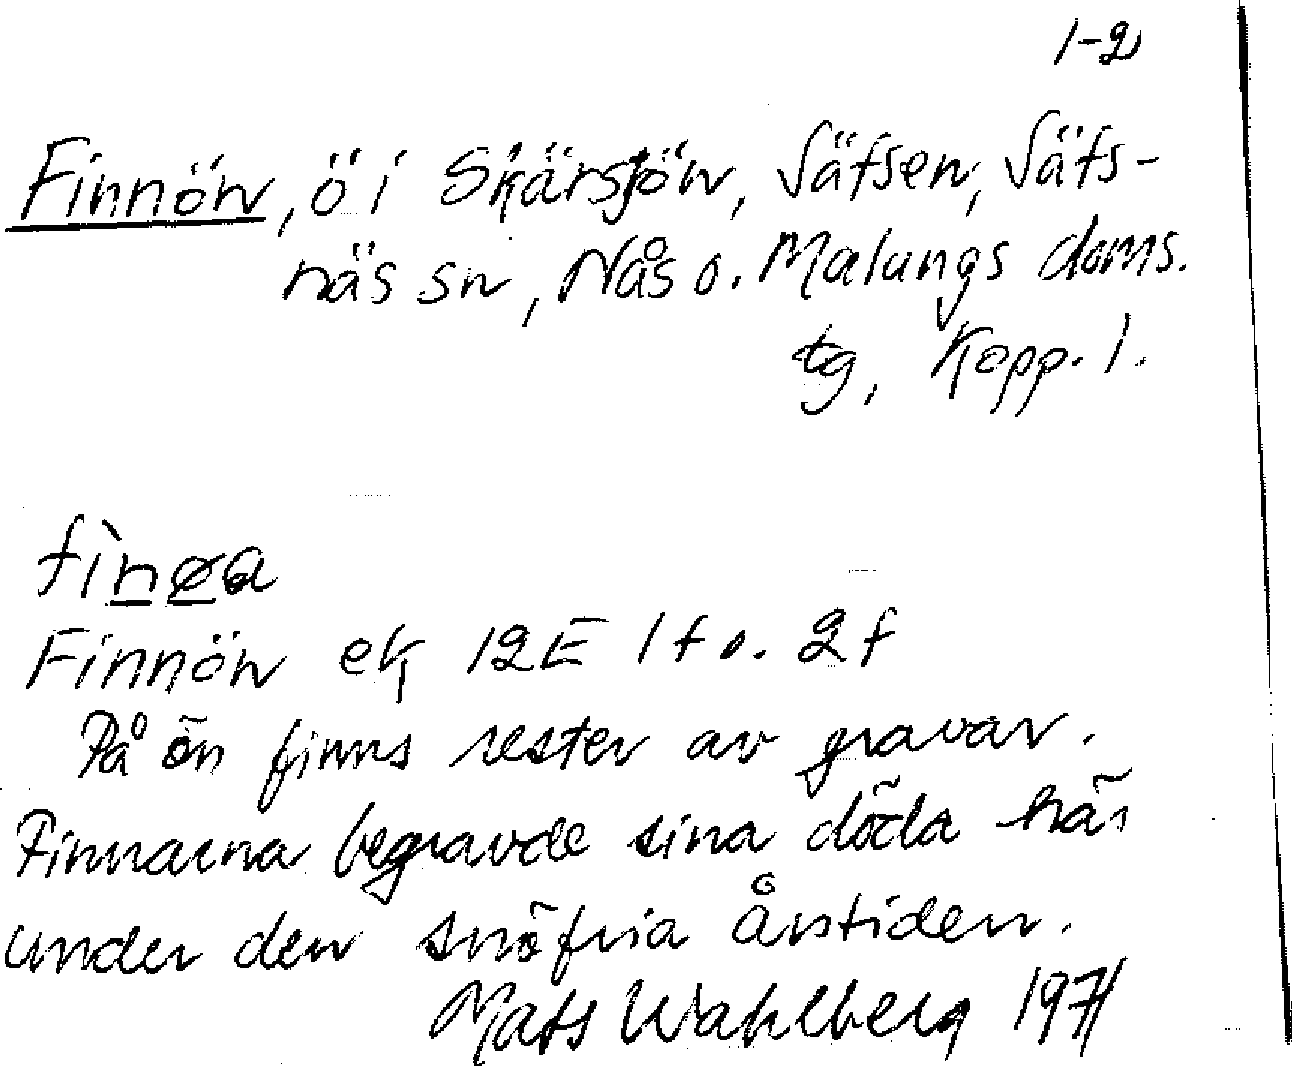 1-2
Finnön, ö i Skärsjön, Säfsen, Säfs-
näs sn, Nås o. Malungs doms.
tg, Kopp. l.
fìnøa
Finnön ek 12E 1f o. 2f
På ön finns rester av gravar.
Finnarna begravde sina döda här
under den snöfria årstiden.
Mats Wahlberg 1971